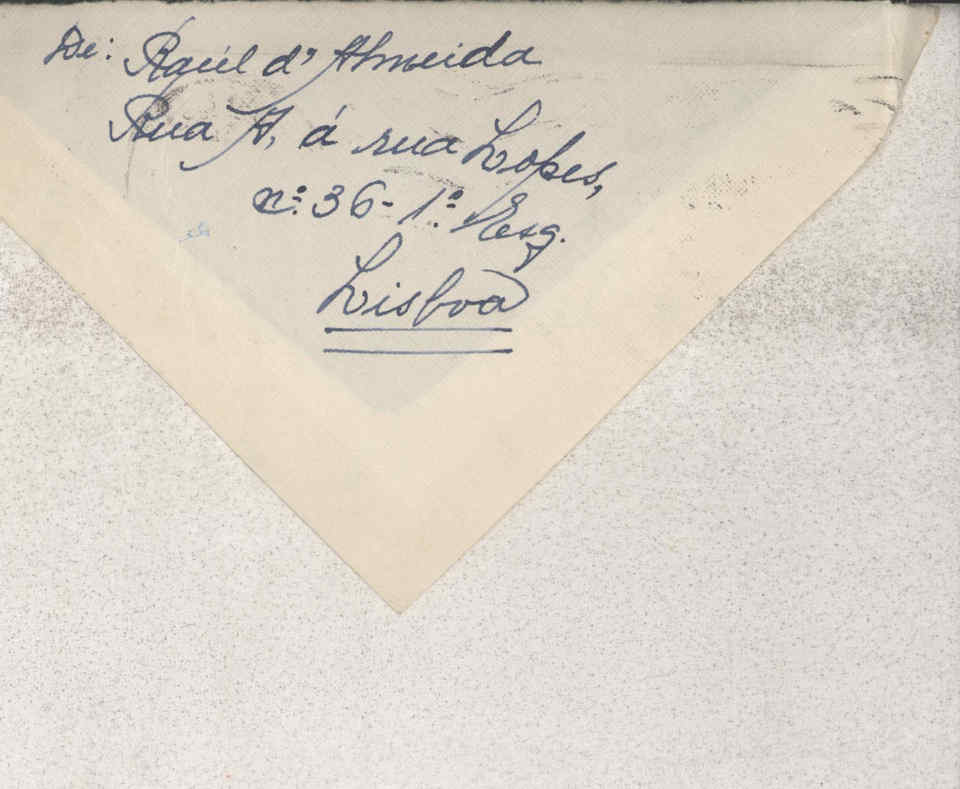 De: Raúl d'Almeida
Rua A, á rua Lopes,
nº 36 - 1º Esq.
Lisboa